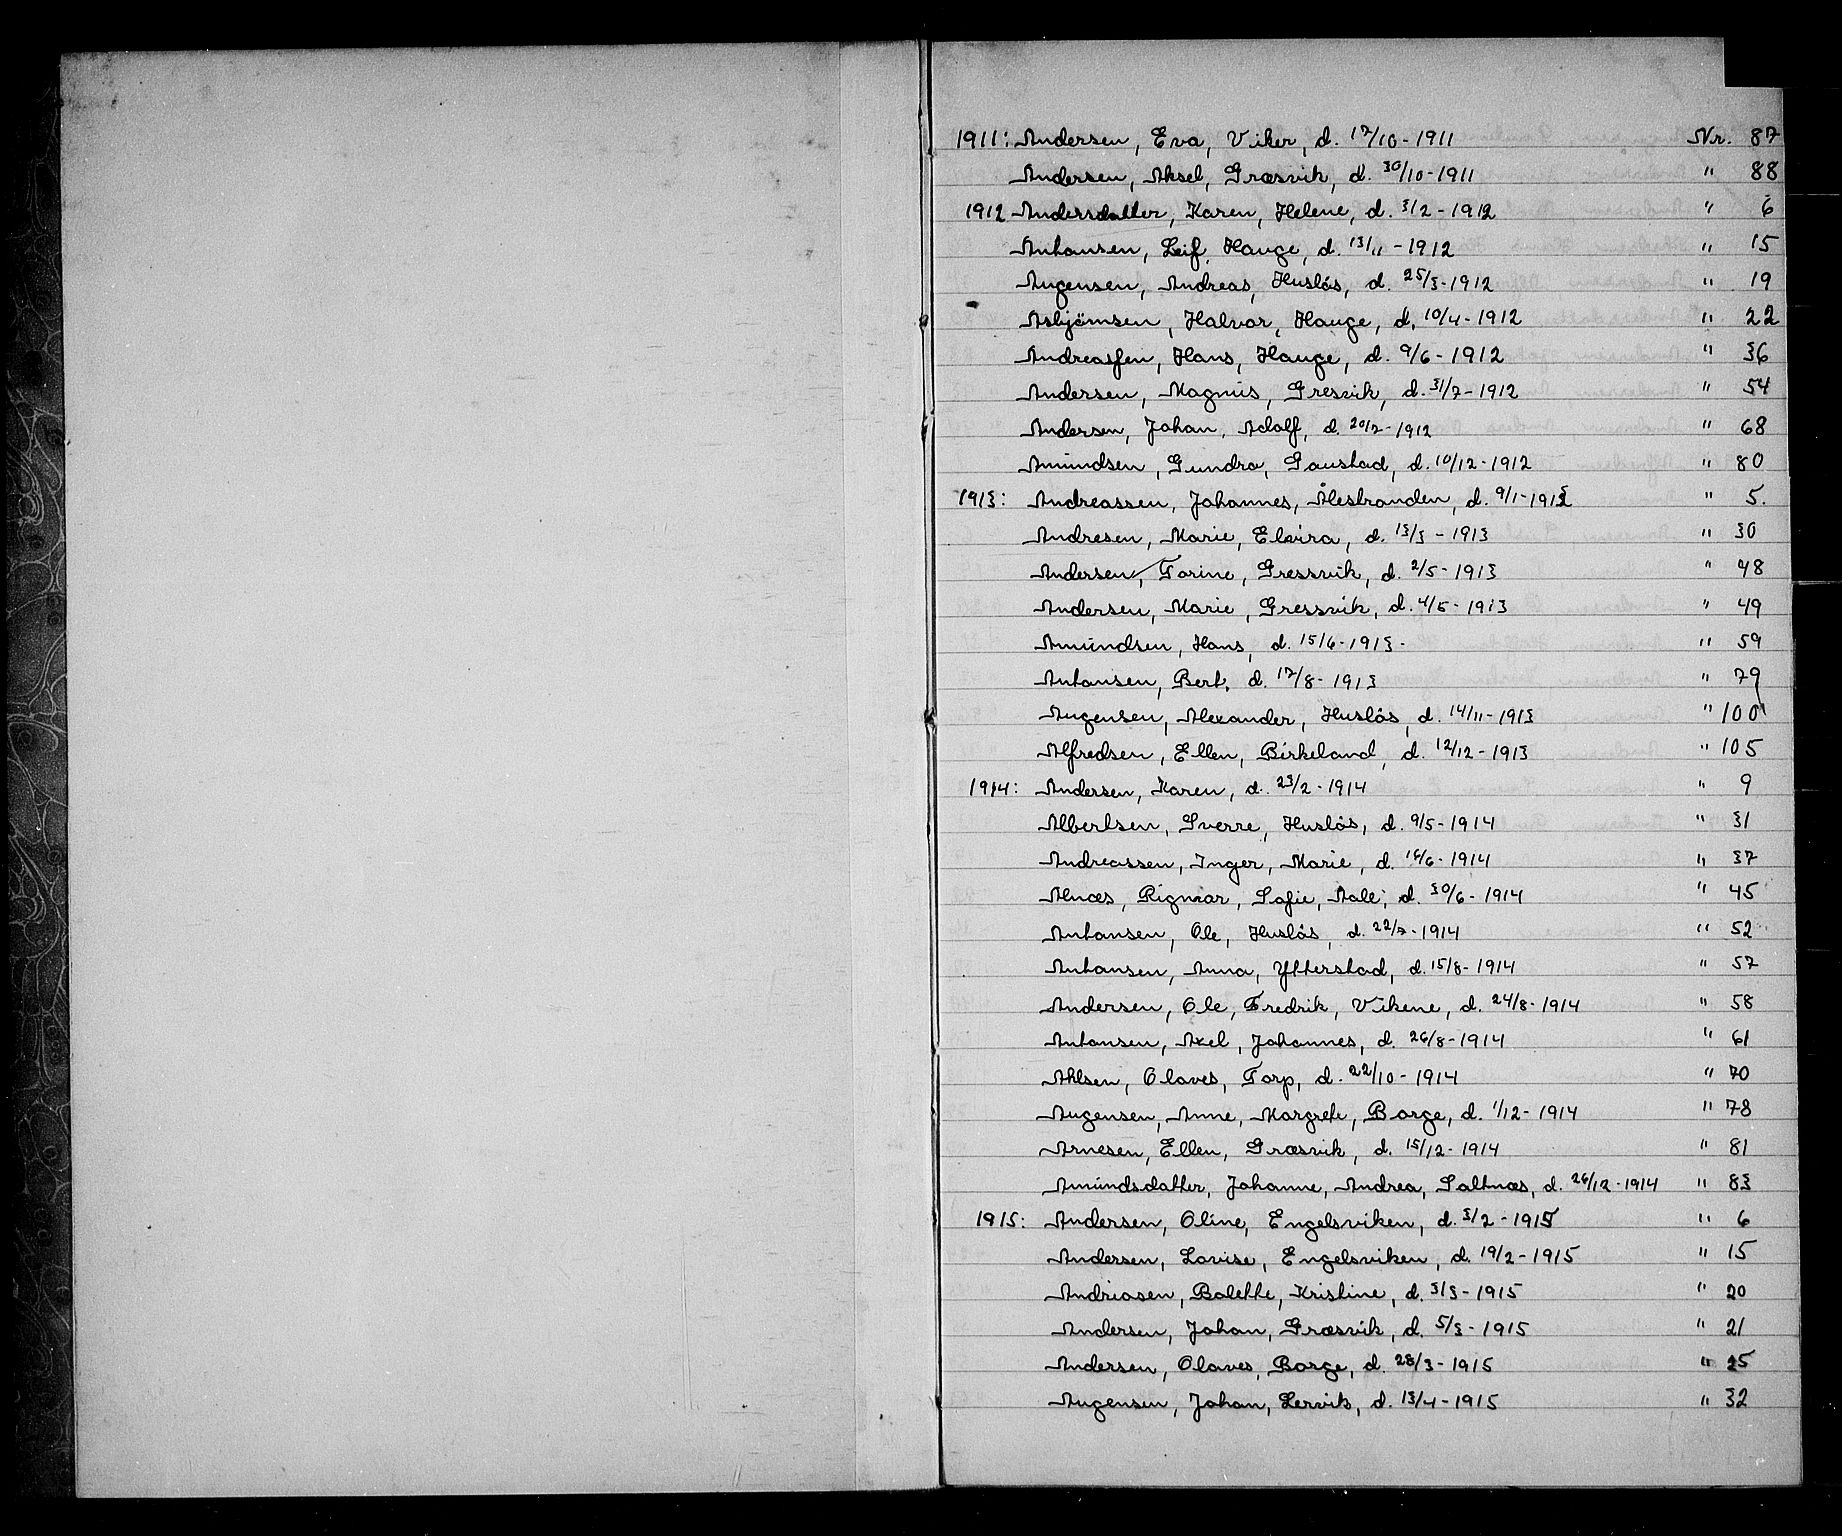 1911: Andersen, Eva, Viker, d. 17/10-1911 Nr. 87
Andersen, Aksel, Græsvik, d. 30/10-1911 " 88
1912 Andersdatter, Karen, Helene, d. 3/2-1912 " 6
Antonsen, Leif, Hauge, d. 13/11-1912 " 15
Augensen, Andreas, Husløs, d. 25/3-1912 " 19
Asbjørnsen, Halvor, Hauge, d. 10/4-1912 " 22
Andreassen, Hans, Hauge, d. 9/6-1912 " 36
Andersen, Magnus, Gresvik, d. 31/7-1912 " 54
Andersen, Johan, Adolf, d. -1912 " 68
Amundsen, Gundra, Gaustad, d. 10/12-1912 " 80
1913: Andreassen, Johannes, Ålestranden, d. 9/1-1913 " 5.
Andresen, Marie, Elvira, d. 13/3-1913 " 30
Andersen, Torine, Gressvik, d. 2/5-1913 " 48
Andersen, Marie, Gressvik, d. 4/5-1913 " 49
Amundsen, Hans, d. 15/6-1913- " 59
Antonsen, Bert. d. 17/8-1913 " 79
Augensen, Alexander, Husløs, d. 14/11-1913 " 100
Alfredsen, Ellen, Birkeland, d. 12/12-1913 " 105
1914: Andersen, Karen, d. 23/2-1914 " 9
Albertsen, Sverre, Husløs, d. 9/5-1914 " 31
Andreassen, Inger, Marie, d. 16/6-1914 " 37
Alnæs, Rigmor, Sofie, Aale, d. 30/6-1914 " 45
Antonsen, Ole, Husløs, d. 22/7-1914 " 52
Antonsen, Anna, Ytterstad, d. 15/8-1914 " 57
Andersen, Ole, Fredrik, Vikene, d. 24/8-1914 " 58
Antonsen, Axel, Johannes, d. 26/8-1914 " 61
Ahlsen, Olaves, Torp, d. 22/10-1914 " 70
Augensen, Anne, Margrete, Borge, d. 1/12-1914 " 78
Arnesen, Ellen, Græsvik, d. 15/12-1914 " 81
Amundsdatter, Johanne, Andrea, Saltnæs, d. 26/12-1914 " 83
1915: Andersen, Oline, Engelsviken, d. 3/2-1915 " 6
Andersen, Lovise, Engelsviken, d. 19/2-1915 " 15
Andriasen, Bolette, Kristine, d. 3/3-1915 " 20
Andersen, Johan, Græsvik, d. 5/3-1915 " 21
Andersen, Olaves, Borge, d. 28/3-1915 " 25
Augensen, Johan, Lervik, d. 13/4-1915 " 32